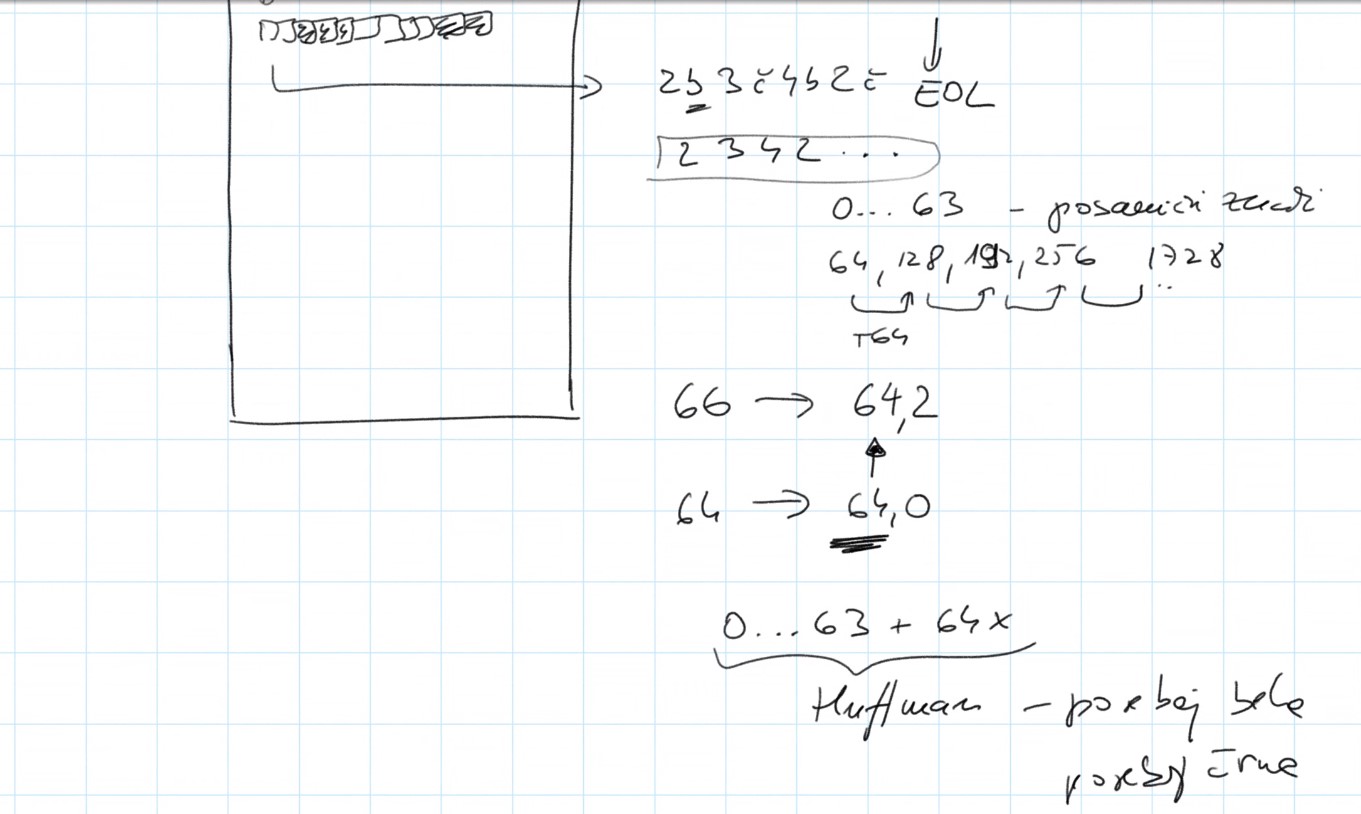 2b 3č 4b 2č EOL
2 3 4 2 ...
0... 63 - posamični znaki
64, 128, 192, 256 .. 1728
+64
66 → 64,2
64 → 64,0
0...63 + 64x
Huffman - posebej bele
posebej črne